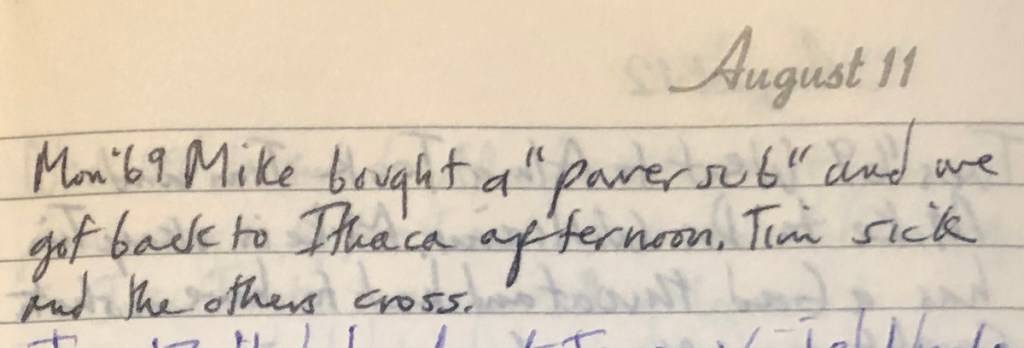 August 11
Mon '69 Mike bought a "paver sub" and we
got back to Ithaca afternoon. Tim sick
and the others cross.